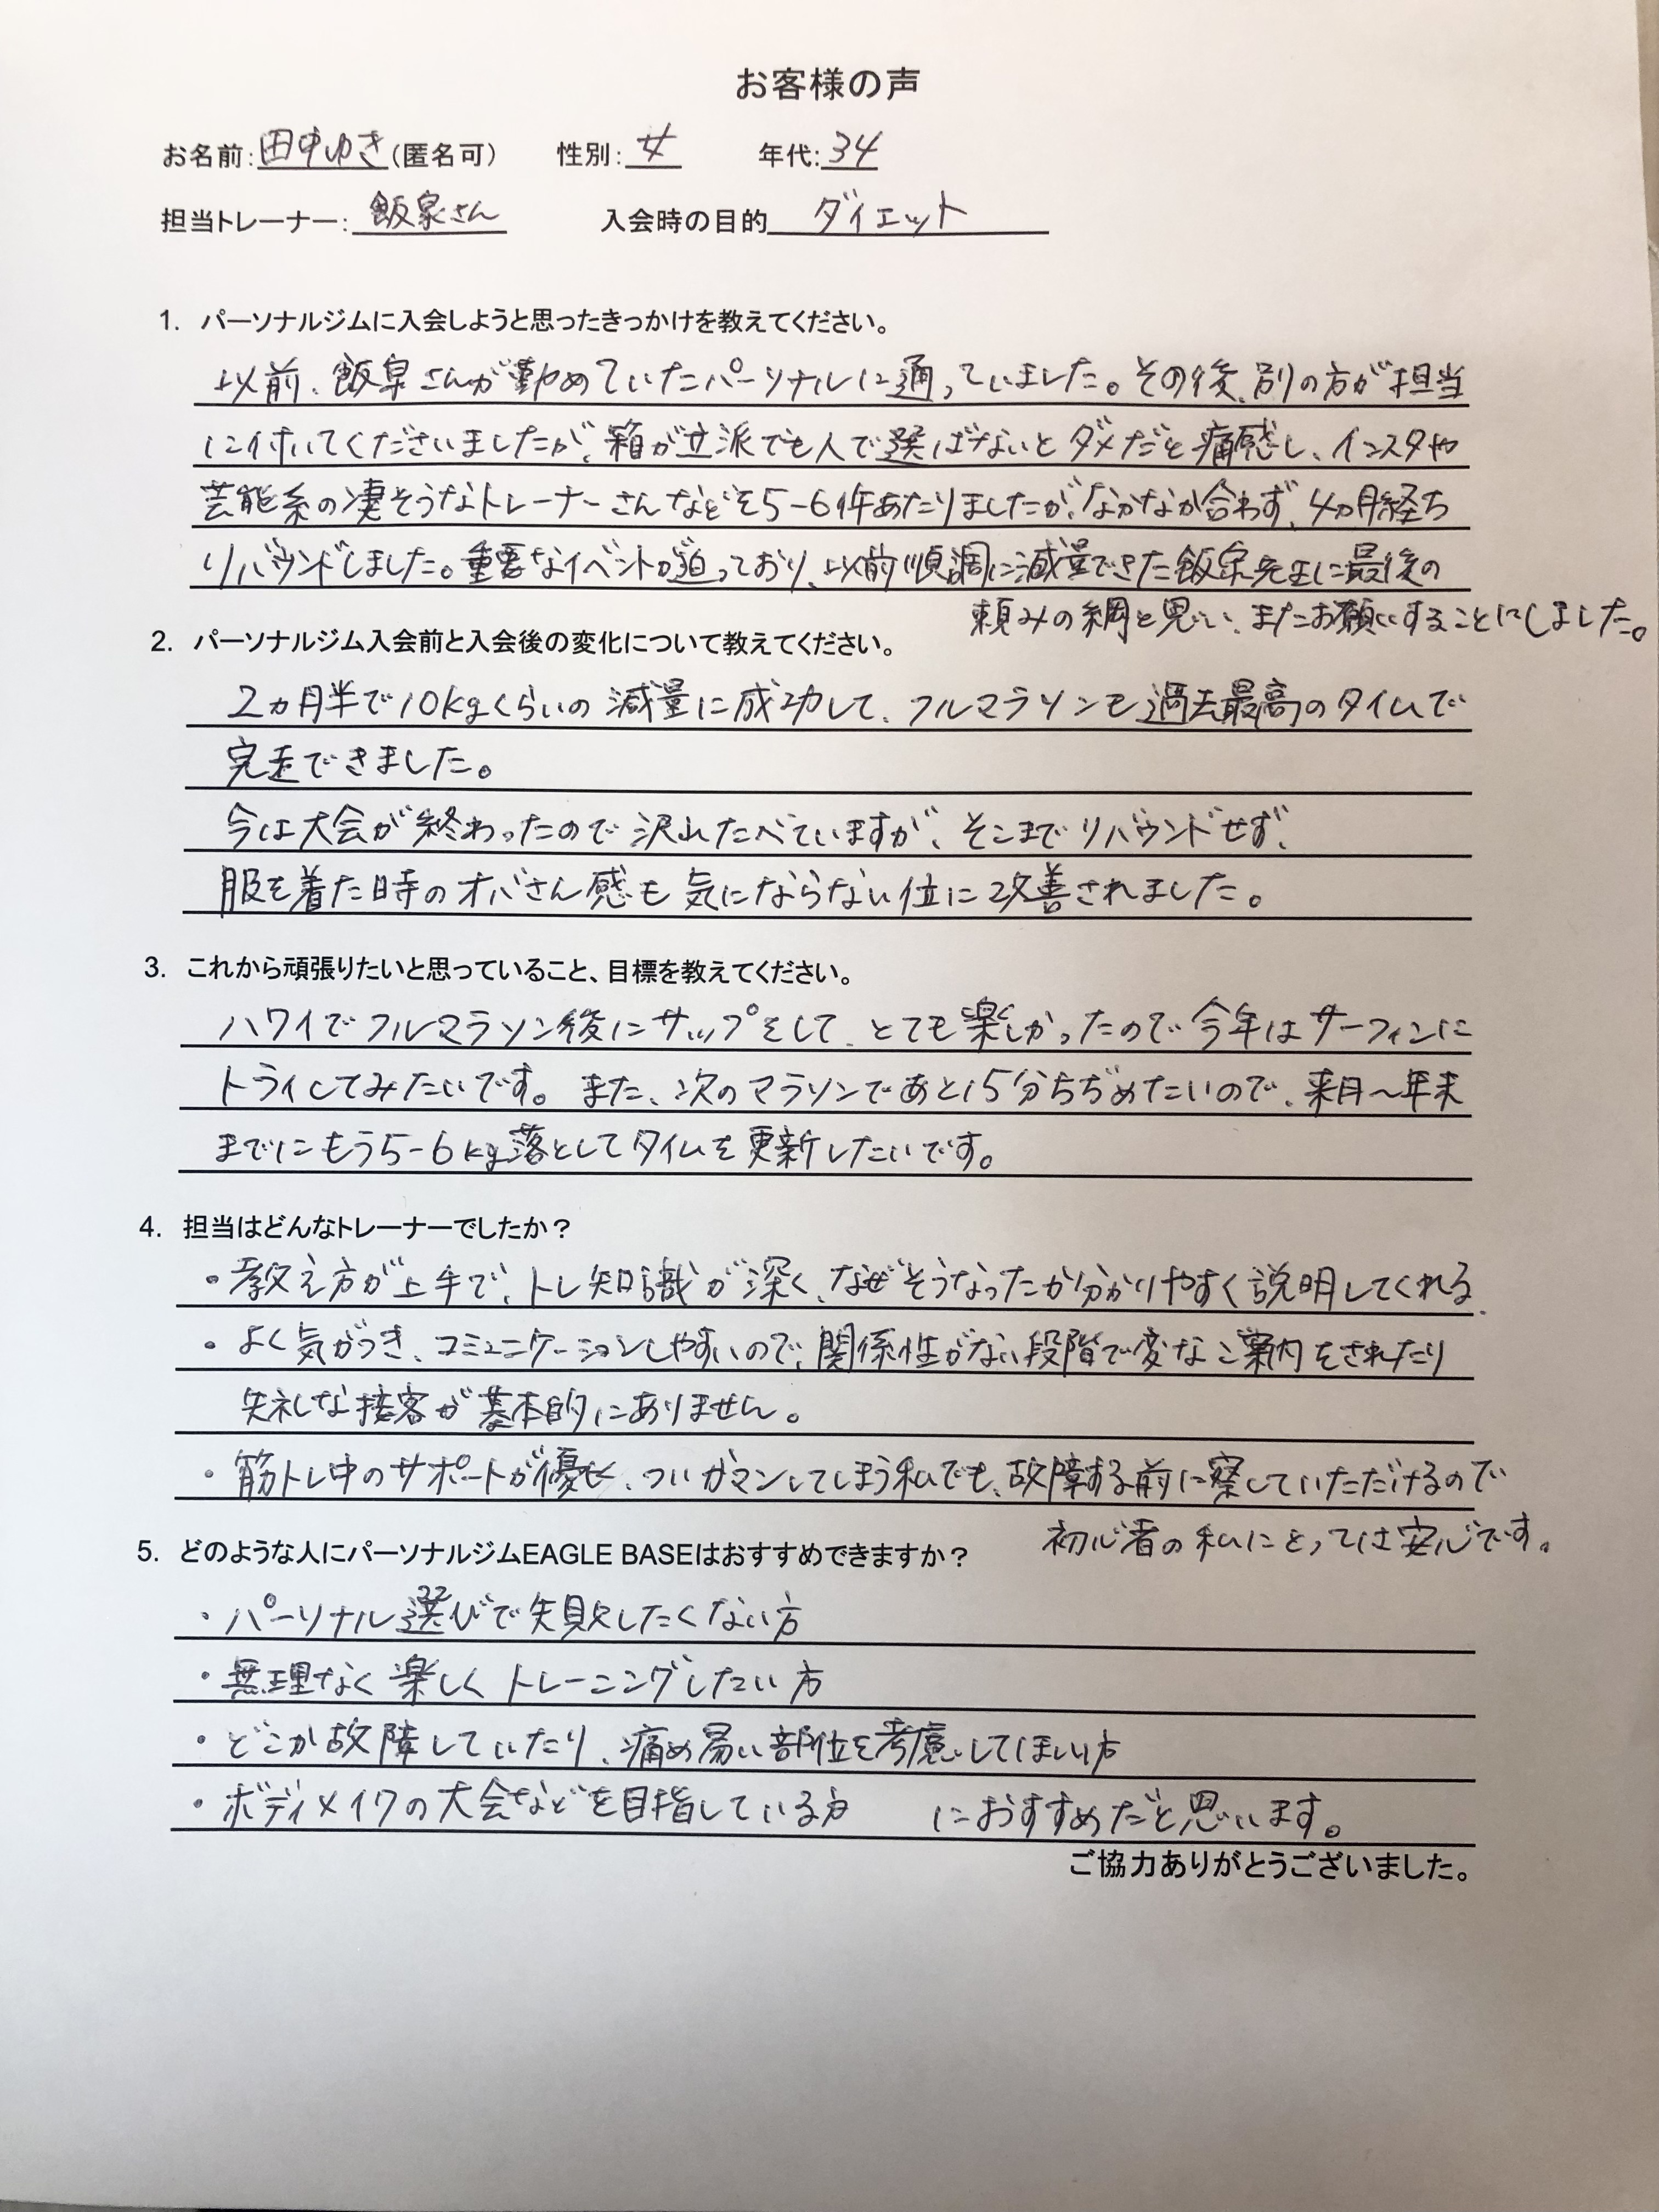 お客様の声
お名前:田中ゆき(匿名可) 性別:女 年代:34
担当トレーナー:飯泉さん 入会時の目的 ダイエット
1. パーソナルジムに入会しようと思ったきっかけを教えてください。
以前、飯泉さんが勤めていたパーソナルに通っていました。その後、別の方が担当
に付いてくださいましたが、箱が立派でも人で選ばないとダメだと痛感し、インスタや
芸能系の凄そうなトレーナーさんなどを5-6件あたりましたが、なかなか合わず、4ヵ月経ち
リバウンドしました。重要なイベントが迫っており、以前順調に減量できた飯泉先生に最後の
頼みの綱と思い、またお願いすることにしました。
2. パーソナルジム入会前と入会後の変化について教えてください。
2ヵ月半で10kgくらいの減量に成功して、フルマラソンも過去最高のタイムで
完走できました。
今は大会が終わったので沢山たべていますが、そこまでリバウンドせず、
服を着た時のオバさん感も気にならない位に改善されました。
3. これから頑張りたいと思っていること、目標を教えてください。
ハワイでフルマラソン後にサップをして、とても楽しかったので今年はサーフィンに
トライしてみたいです。また、次のマラソンであと15分ちぢめたいので、来月〜年末
までにもう5-6kg落としてタイムを更新したいです。
4. 担当はどんなトレーナーでしたか?
・教え方が上手で、トレ知識が深く、なぜそうなったか分かりやすく説明してくれる。
・よく気がつき、コミュニケーションしやすいので、関係性がない段階で変なご案内をされたり
失礼な接客が基本的にありません。
・筋トレ中のサポートが優せ、ついガマンしてしまう私でも、故障する前に察していただけるので
初心者の私にとっては安心です。
5. どのような人にパーソナルジムEAGLE BASEはおすすめできますか?
・パーソナル選びで失敗したくない方
・無理なく楽しくトレーニングしたい方
・どこか故障していたり、痛め易い部位を考慮してほしい方
・ボディメイクの大会などを目指している方 におすすめだと思います。
ご協力ありがとうございました。